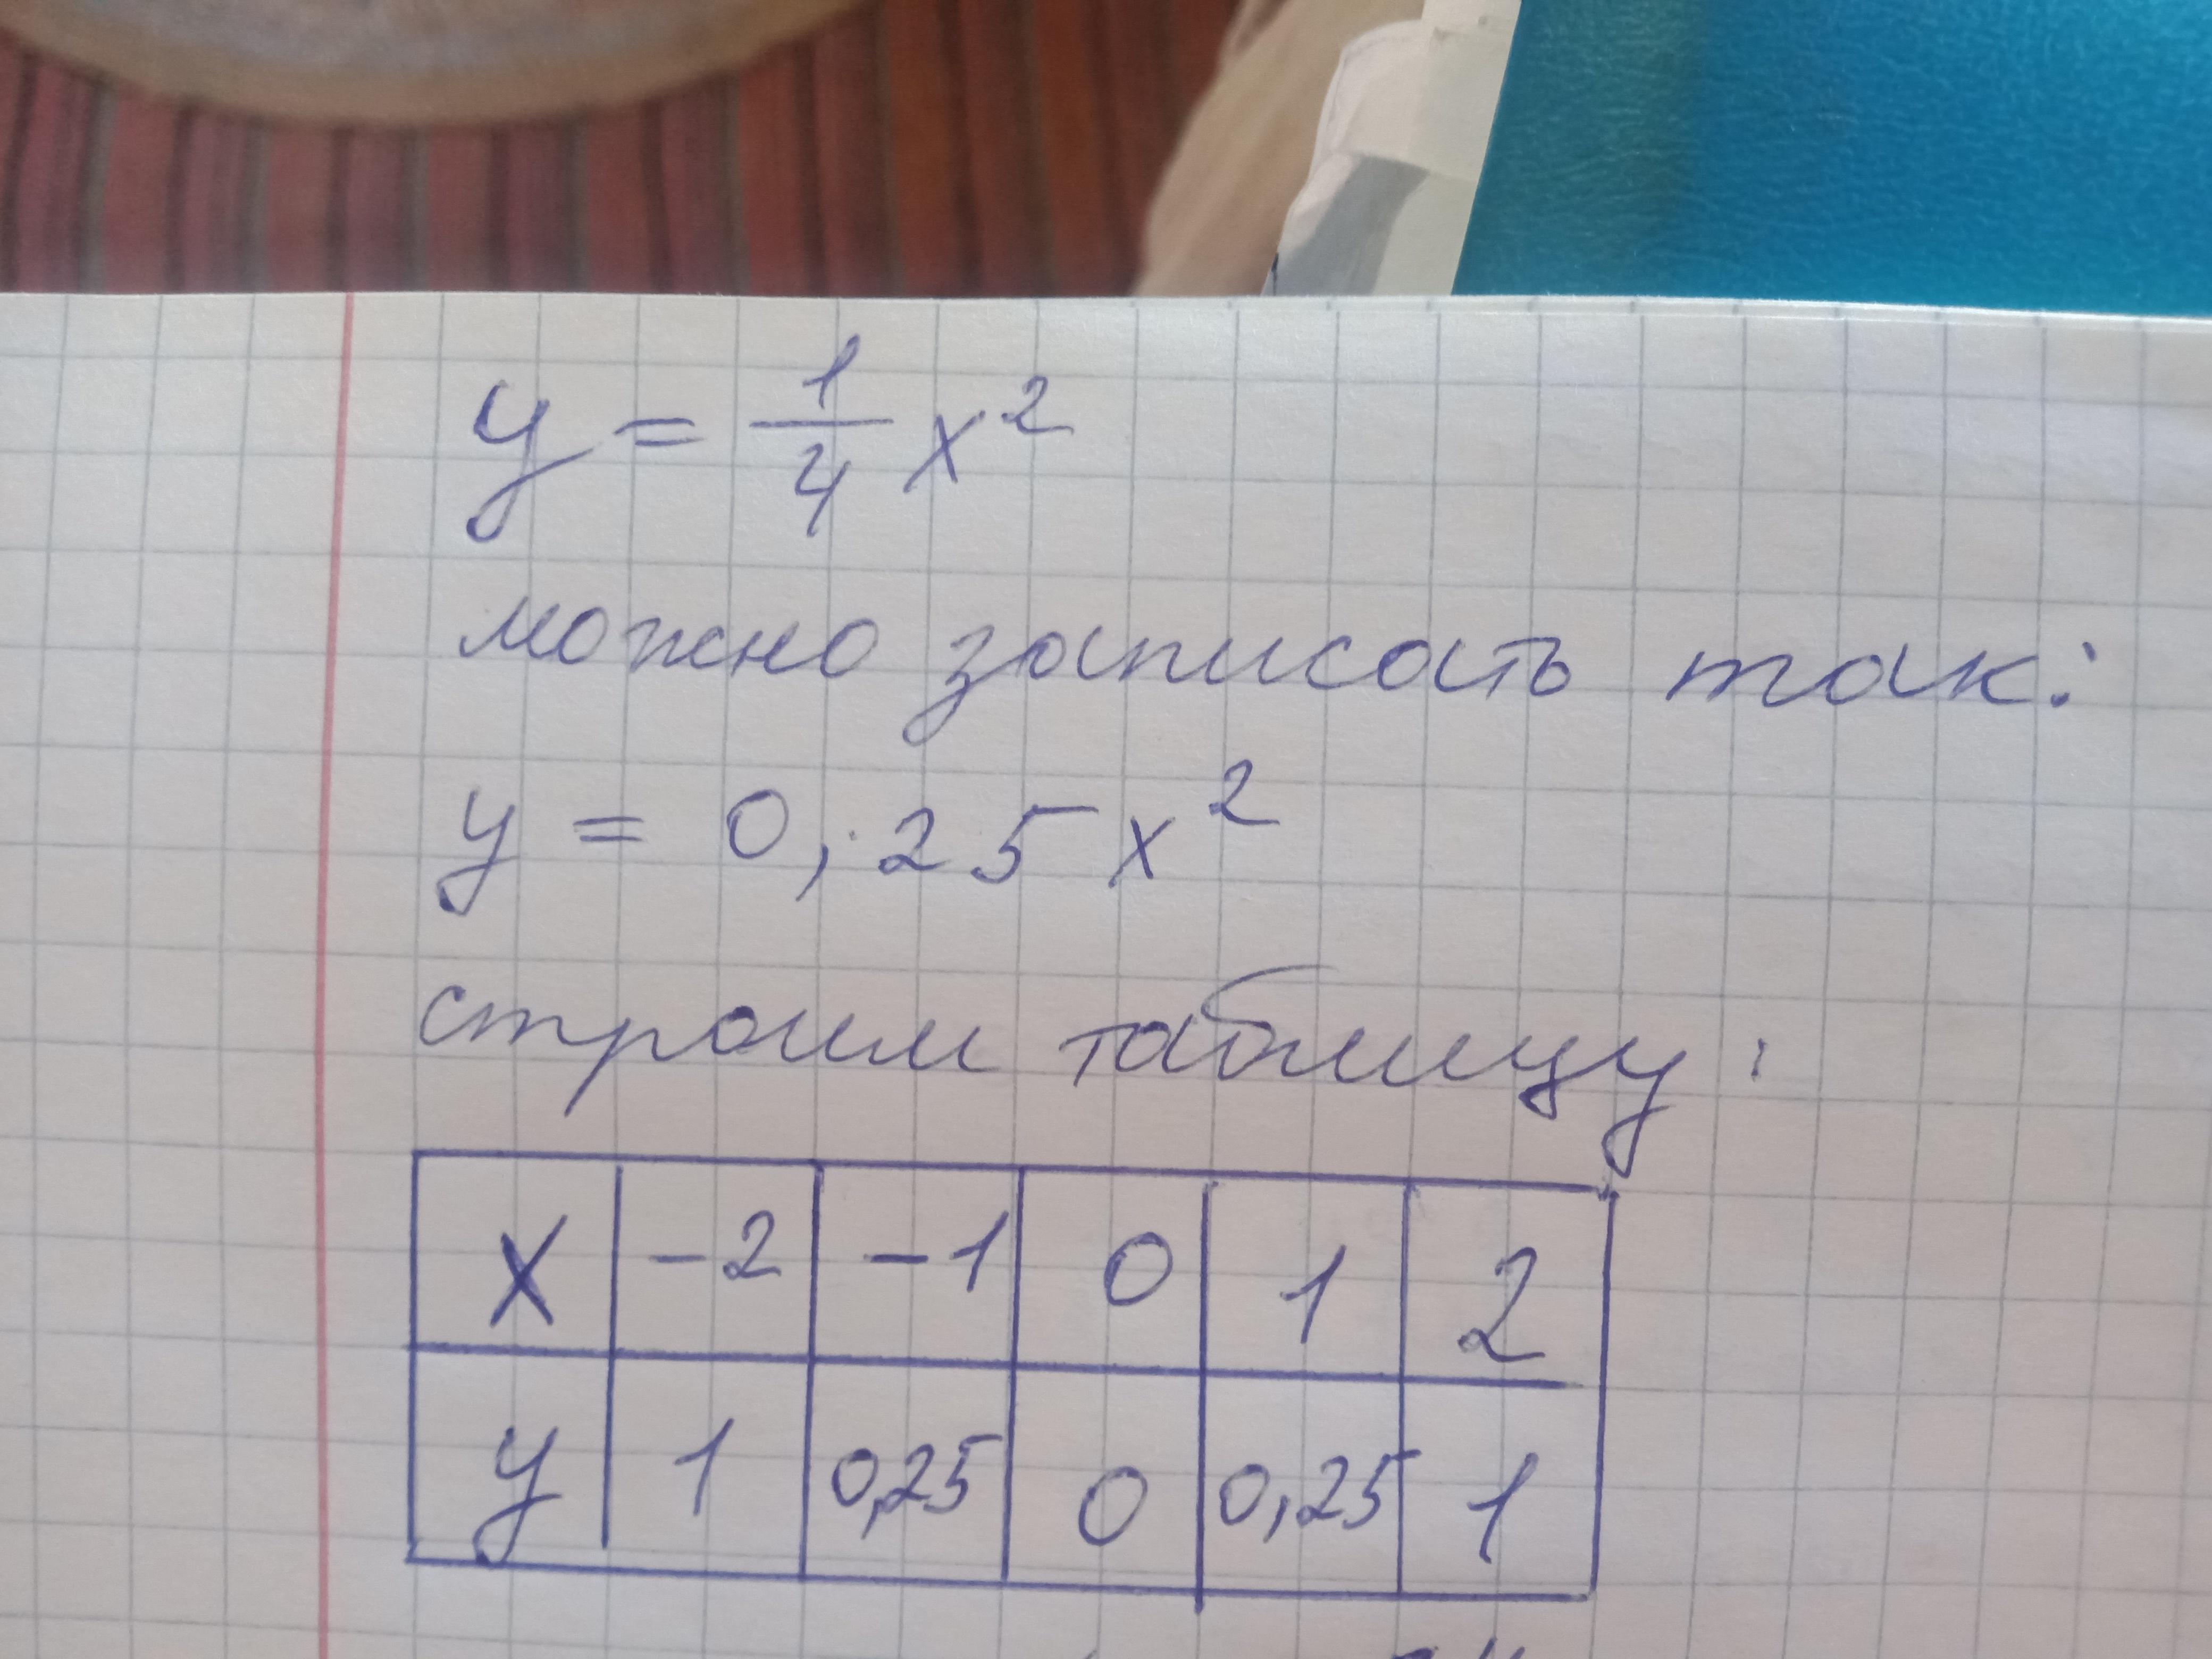 y = 1/4 x²
можно записать так:
y = 0,25x²
строим таблицу:
x -2 -1 0 1 2
y 1 0,25 0 0,25 1